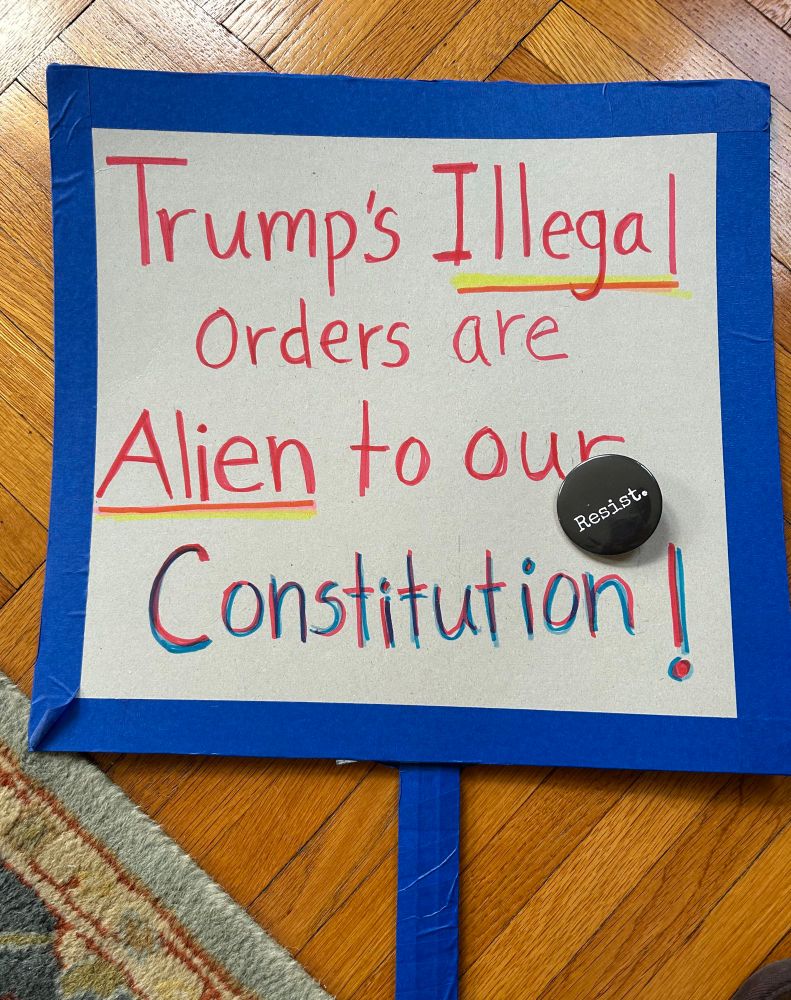 Trump's Illegal
Orders are
Alien to our
Resist.
Constitution!